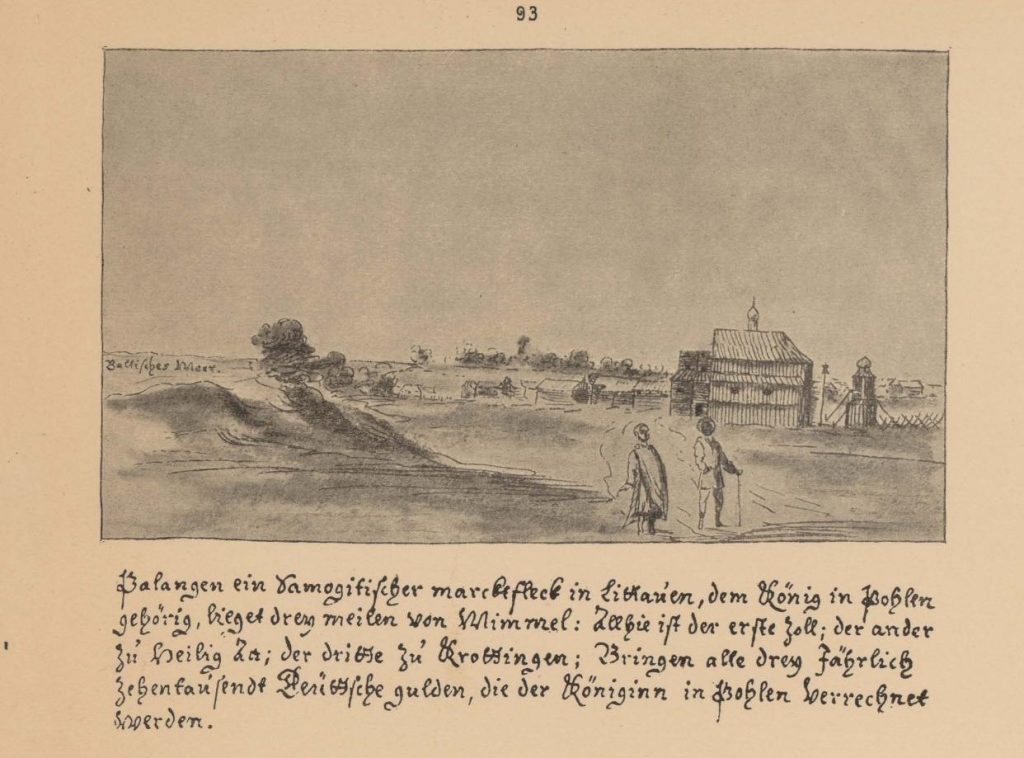 93
Baltisches Meer.
Palangen ein Samogitischer marcktfleck in Littauen, dem König in Pohlen
gehörig, lieget drey meilen von Mimmel: Allhie ist der erste Zoll; der ander
zu Heilig Aa; der dritte zu Krottingen; Bringen alle drey Jährlich
zehentausendt Teüttsche gulden, die der Königinn in Pohlen verrechnet
werden.